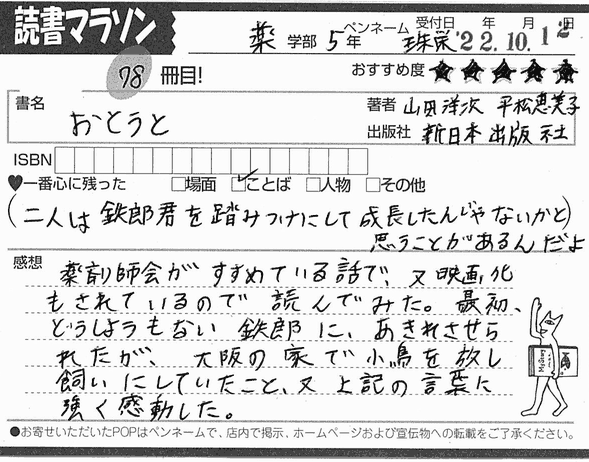 読書マラソン
薬 学部 5年 ペンネーム 珠栄 受付日 '22年10月12日
78 冊目! おすすめ度 ★★★★★
書名 おとうと
著者 山田洋次 平松恵美子
出版社 新日本出版社
ISBN
♥一番心に残った □場面 ☑ことば □人物 □その他
(二人は 鉄郎君を踏みつけにして成長したんじゃないかと)
思うことがあるんだよ
感想 薬剤師会がすすめている話で、又映画化
もされているので 読んでみた。最初、
どうしようもない 鉄郎に、あきれさせら
れたが、大阪の家で小鳥を放し
飼いにしていたこと、又 上記の言葉に
強く感動した。
●お寄せいただいたPOPはペンネームで、店内で掲示、ホームページおよび宣伝物への転載をご了承ください。